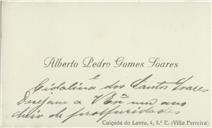 Alberto Pedro Gomes Soares
e
Gidalina dos Santos Soares
desejam a V. Exª um ano
cheio de prosperidades
Calçada do Lavra, 4, 5.º E. (Villa Ferreira)